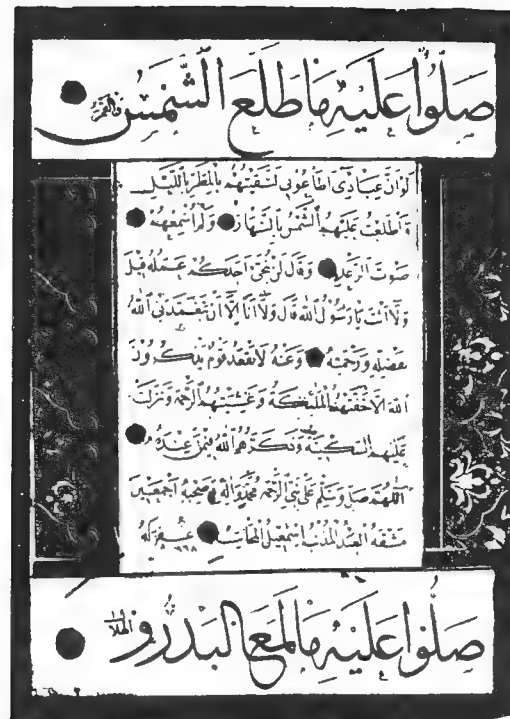 صَلُّوا عَلَيْهِ مَا طَلَعَ الشَّمْسُ وَالقَمَرُ
لَوْ اَنَّ عِبَادِى اَطَاعُونِى لَسَقَيْتُهُمْ بِالْمَطَرِ بِاللَّيْلِ
وَاَطْلَعْتُ عَلَيْهِمُ الشَّمْسَ بِالنَّهَارِ وَلَمْ اُسْمِعْهُمْ
صَوْتَ الرَّعْدِ وَقَالَ لَنْ يُنْجِىَ اَحَدَكُمْ عَمَلُهُ قِيلَ
وَلَا اَنْتَ يَا رَسُولَ اللّٰهِ قَالَ وَلَا اَنَا اِلَّا اَنْ يَتَغَمَّدَنِىَ اللّٰهُ
بِفَضْلِهِ وَرَحْمَتِهِ وَعَنْهُ لَا يَقْعُدُ قَوْمٌ يَذْكُرُونَ
اللّٰهَ اِلَّا حَفَّتْهُمُ الْمَلٰئِكَةُ وَغَشِيَتْهُمُ الرَّحْمَةُ وَنَزَلَتْ
عَلَيْهِمُ السَّكِينَةُ وَذَكَرَهُمُ اللّٰهُ فِيمَنْ عِنْدَهُ
اَللّٰهُمَّ صَلِّ وَسَلِّمْ عَلَى نَبِىِّ الرَّحْمَةِ مُحَمَّدٍ وَاٰلِهِ وَصَحْبِهِ اَجْمَعِينَ
مَشَقَهُ الْعَبْدُ الْمُذْنِبُ اِسْمٰعِيلُ غُفِرَ لَهُ
صَلُّوا عَلَيْهِ مَا لَمَعَ الْبَدْرُ وَ